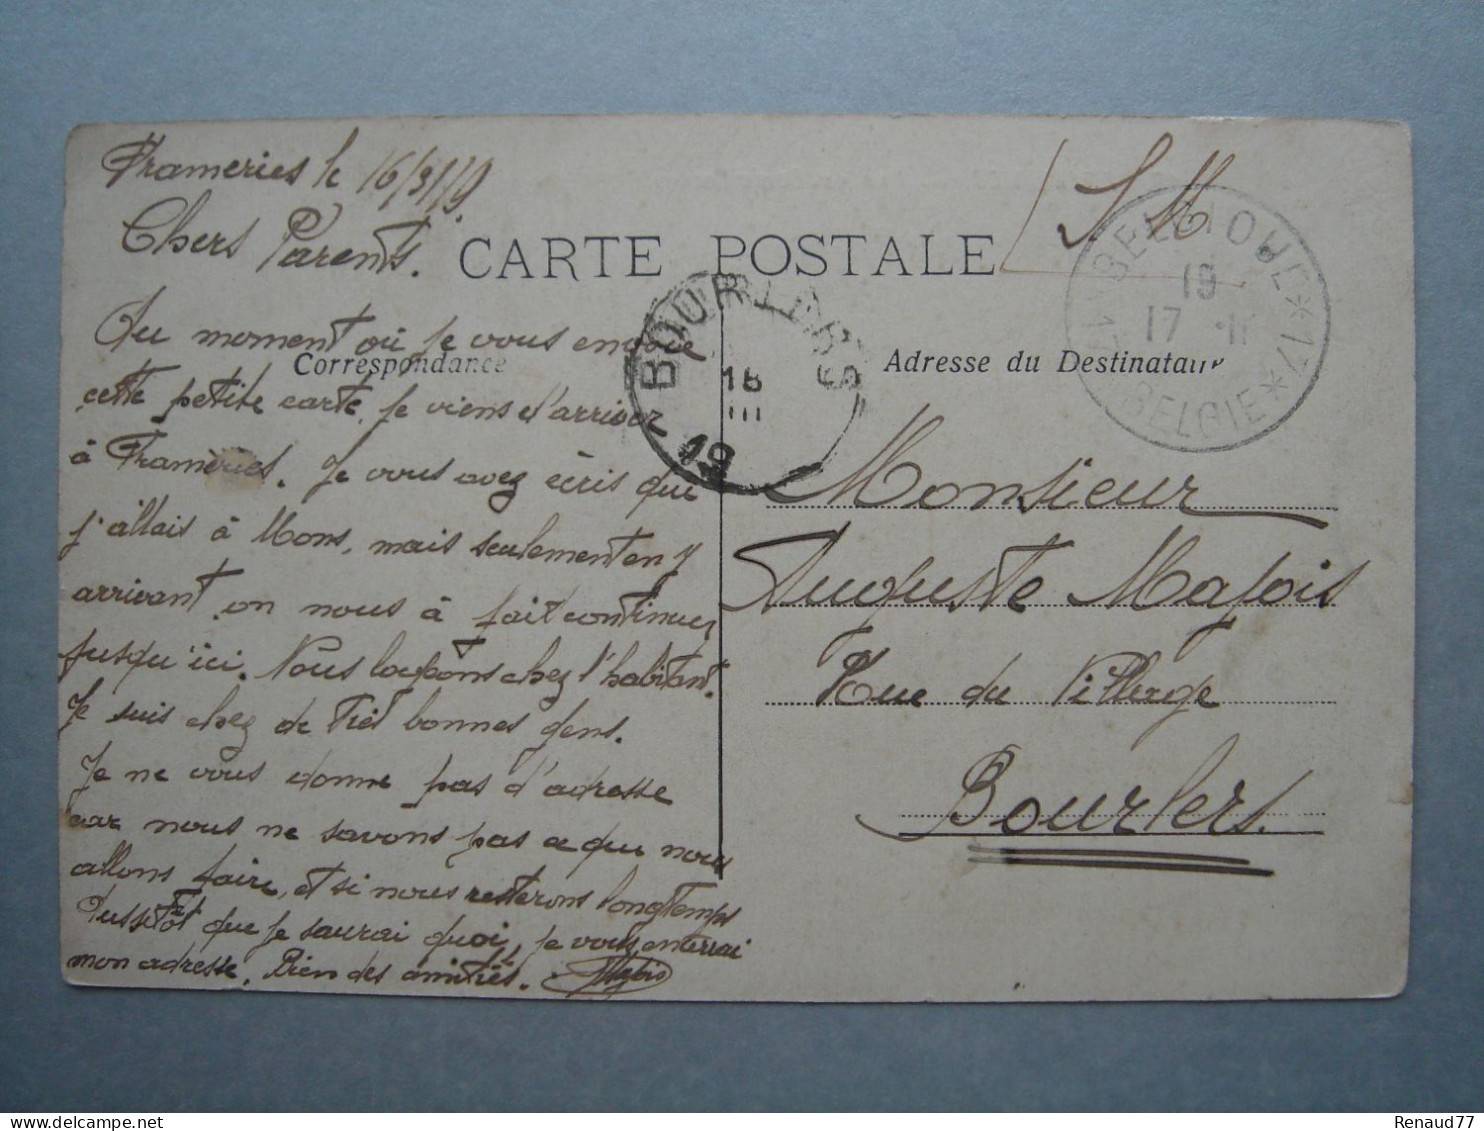 Frameries le 16/3/19.
Chers Parents.
CARTE POSTALE
S M
Correspondance
Adresse du Destinataire
BOURLERS
18
III
19
BELGIQUE * 17 *
BELGIE * 17
19
17 · II
Au moment où je vous envoie
cette petite carte, je viens d'arriver
à Frameries. Je vous avez écris que
j'allais à Mons, mais seulement en y
arrivant on nous à fait continuer
jusqu'ici. Nous logeons chez l'habitant.
Je suis chez de très bonnes gens.
Je ne vous donne pas d'adresse
car nous ne savons pas ce que nous
allons faire, et si nous resterons longtemps
Aussitôt que je saurai quoi, je vous enverrai
mon adresse. Bien des amitiés.
Monsieur
Auguste Majois
Rue du Village
Bourlers.
Renaud77